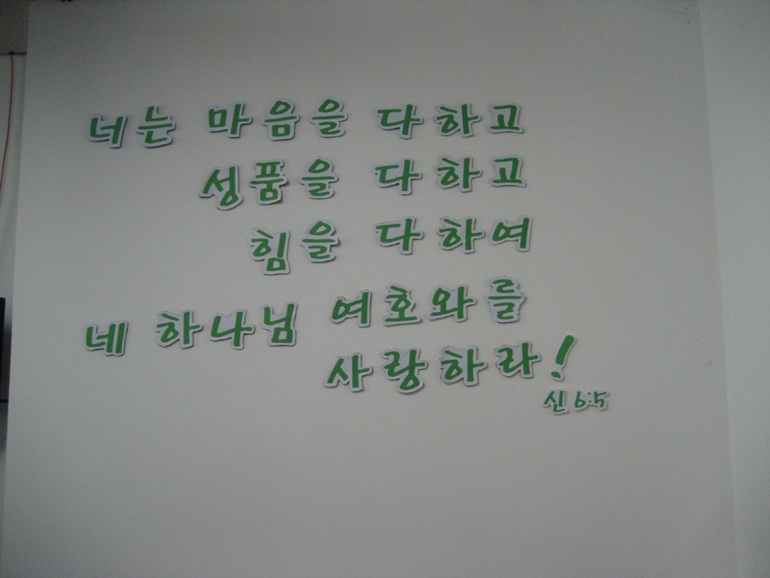 너는 마음을 다하고
성품을 다하고
힘을 다하여
네 하나님 여호와를
사랑하라!
신 6:5